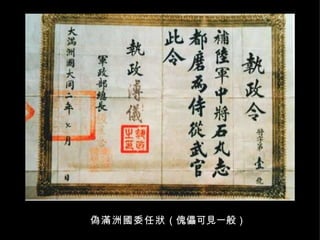 執政令
特字第壹號
補陸軍中將石丸志
都磨為侍從武官
此令
執政溥儀
軍政部總長
大滿洲國大同二年 月 日
偽滿洲國委任狀（傀儡可見一般）